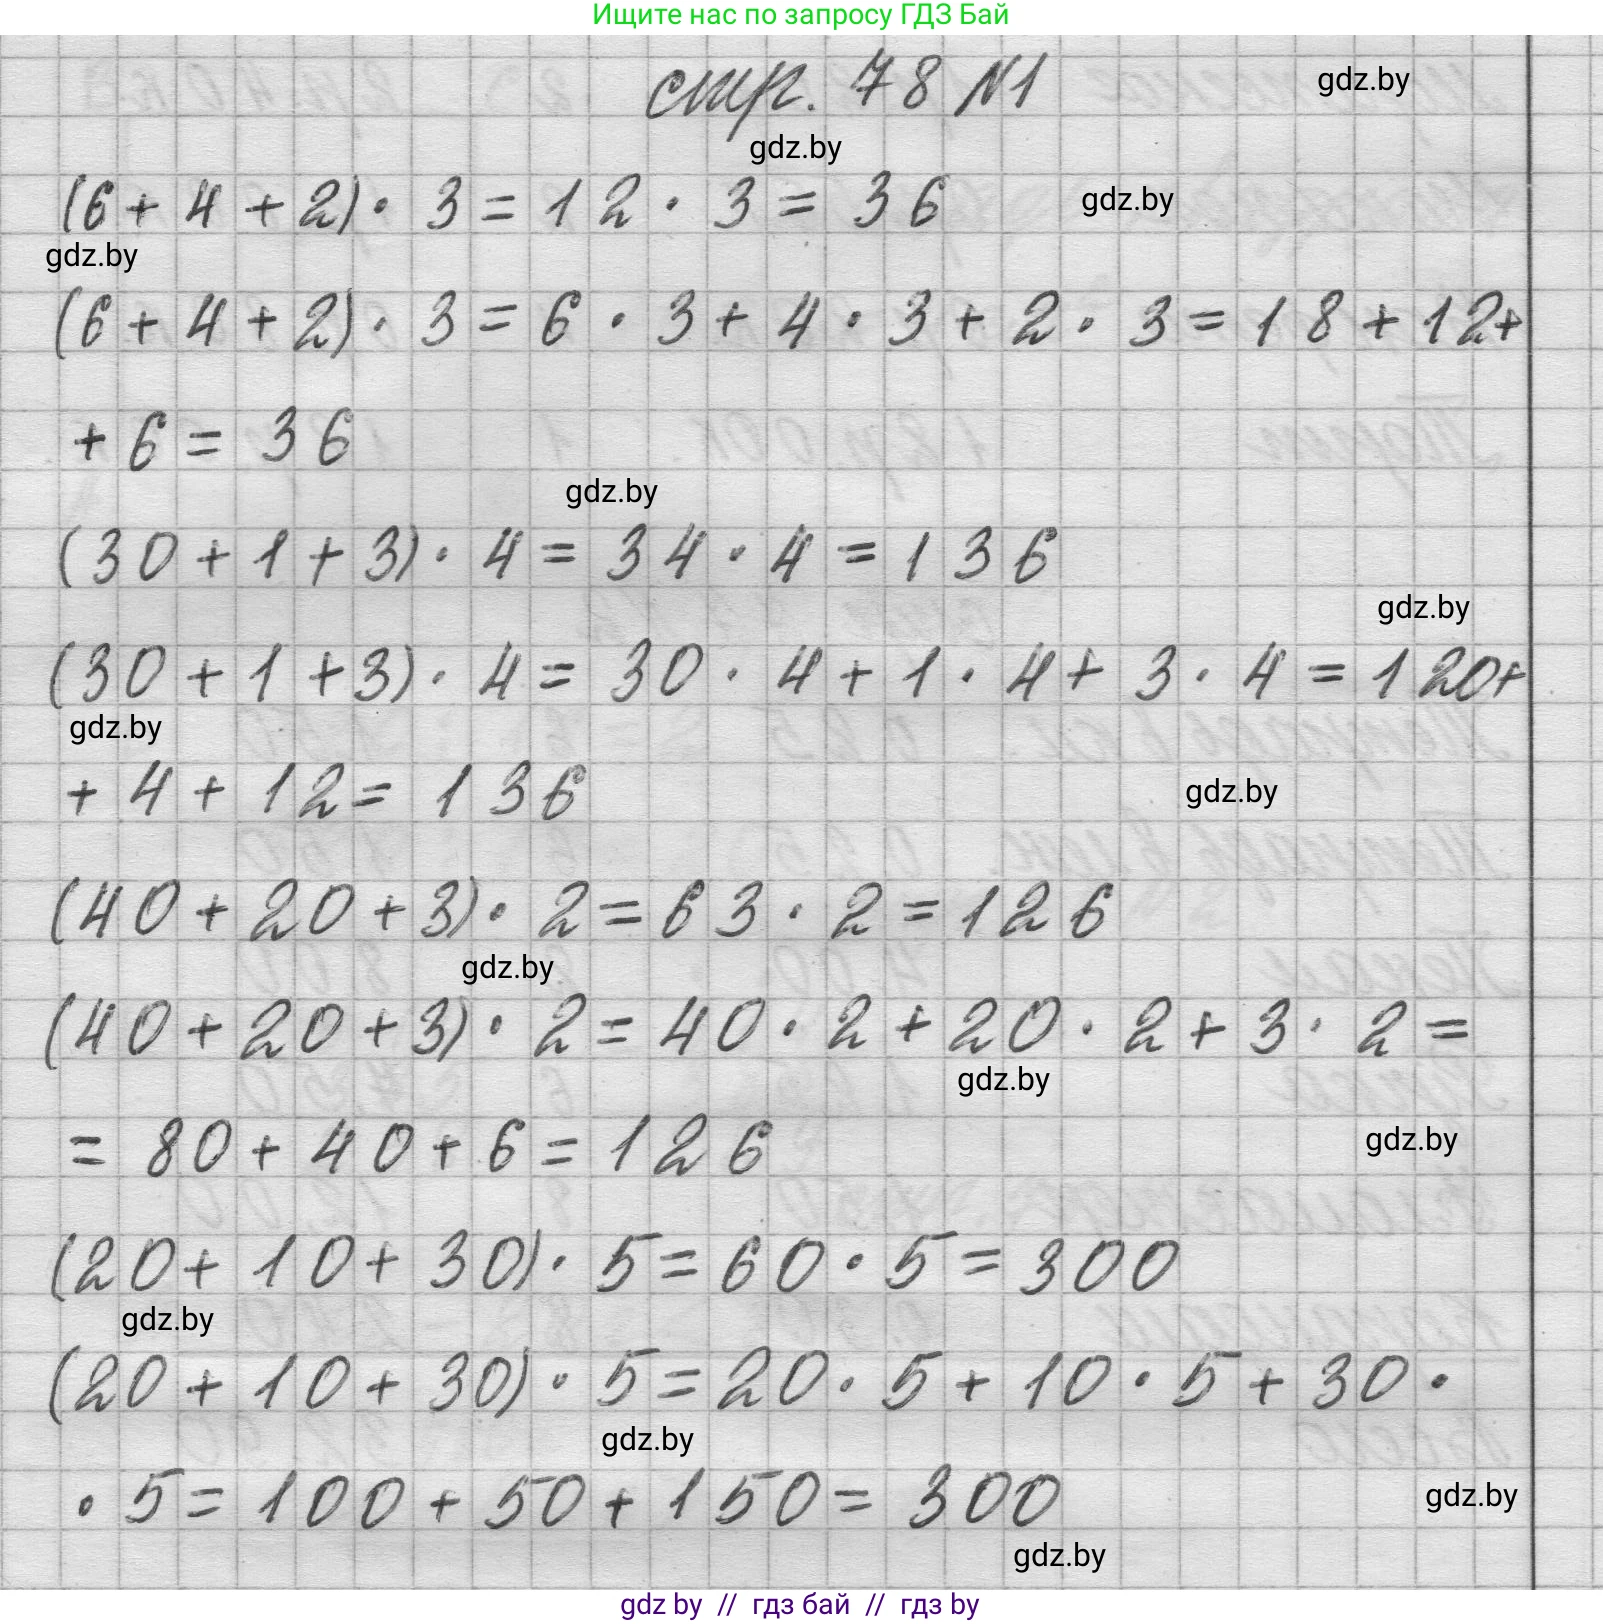 Ищите нас по запросу ГДЗ Бай
стр. 78 №1
gdz.by
gdz.by
(6+4+2)· 3=12· 3=36
gdz.by
gdz.by
(6+4+2)· 3=6· 3+4· 3+2· 3=18+12+
+6=36
gdz.by
(30+1+3)· 4=34· 4=136
gdz.by
(30+1+3)· 4=30· 4+1· 4+3· 4=120+
gdz.by
+4+12=136
gdz.by
(40+20+3)· 2=63· 2=126
gdz.by
(40+20+3)· 2=40· 2+20· 2+3· 2=
gdz.by
=80+40+6=126
gdz.by
(20+10+30)· 5=60· 5=300
gdz.by
(20+10+30)· 5=20· 5+10· 5+30·
gdz.by
· 5=100+50+150=300
gdz.by
gdz.by
gdz by // гдз бай // гдз by